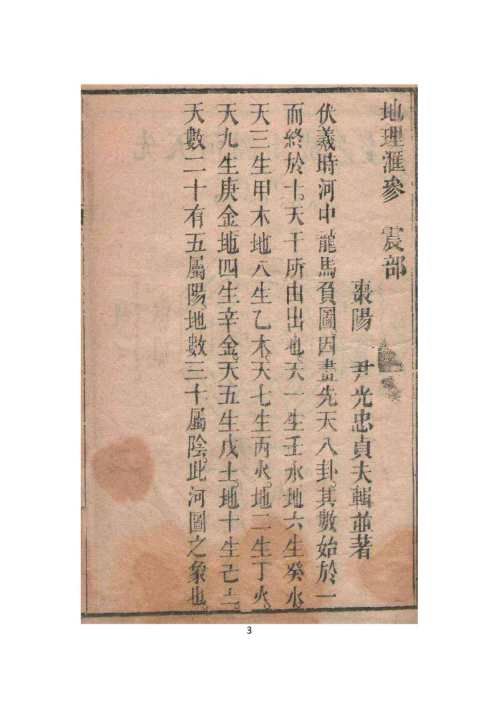 地理滙參 震部
棗陽 尹光忠貞夫輯並著
伏羲時河中龍馬負圖因畫先天八卦其數始於一
而終於十天干所由出也天一生壬水地六生癸水
天三生甲木地八生乙木天七生丙火地二生丁火
天九生庚金地四生辛金天五生戊土地十生己土
天數二十有五屬陽地數三十屬陰此河圖之象也
3